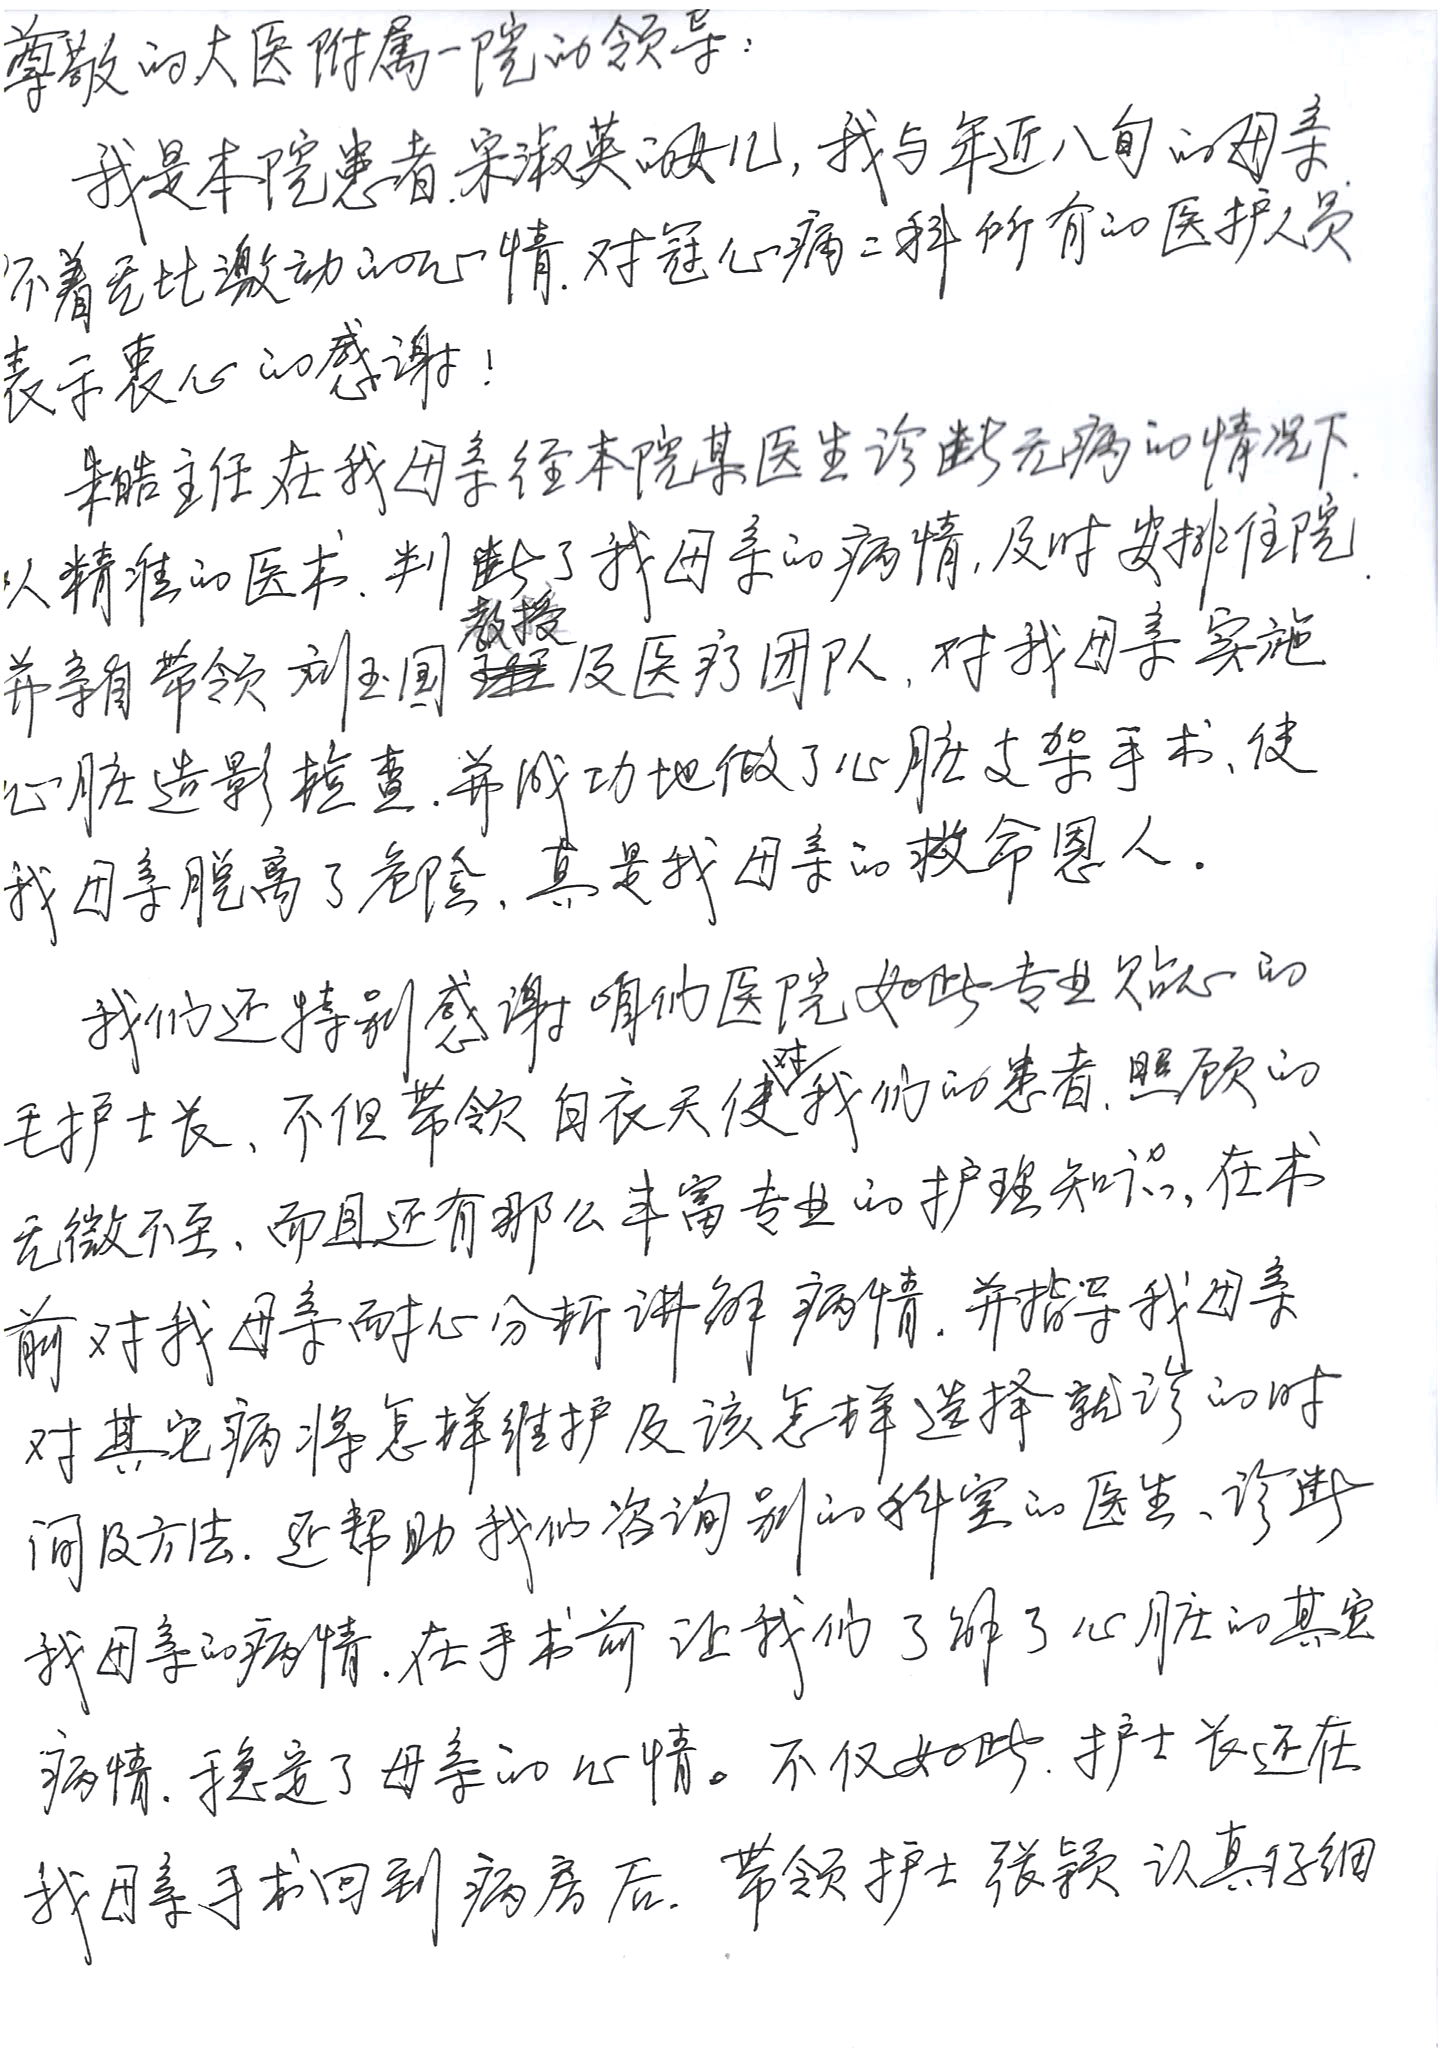 尊敬的大医附属一院的领导：
我是本院患者.宋淑英的女儿，我与年近八旬的母亲.
怀着无比激动的心情.对冠心病二科所有的医护人员
表示衷心的感谢！
朱皓主任在我母亲经本院某医生诊断无病的情况下.
以精准的医术.判断了我母亲的病情,及时安排住院.
并亲自带领刘玉国教授及医疗团队,对我母亲实施
心脏造影检查.并成功地做了心脏支架手术、使
我母亲脱离了危险、真是我母亲的救命恩人.
我们还特别感谢咱们医院如此专业贴心的
毛护士长、不但带领白衣天使对我们的患者.照顾的
无微不至、而且还有那么丰富专业的护理知识,在术
前对我母亲耐心分析讲解病情.并指导我母亲
对其它病将怎样维护及该怎样选择就诊的时
间及方法.还帮助我们咨询别的科室的医生、诊断
我母亲的病情.在手术前让我们了解了心脏的其实
病情.稳定了母亲的心情。不仅如此.护士长还在
我母亲手术回到病房后.带领护士张颖认真仔细